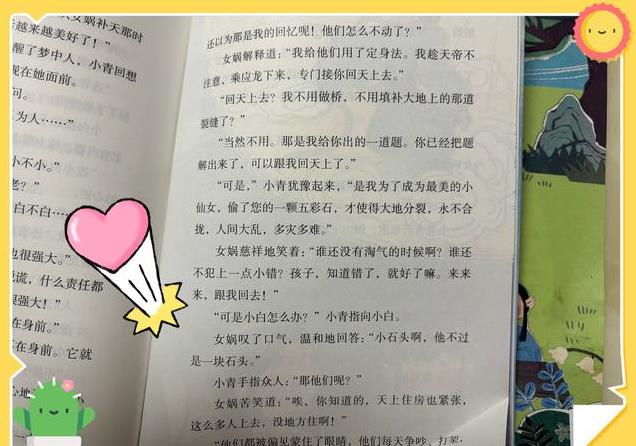 女娲补天那时
越来越美好了！”
醒了梦中人，小青回想
现在她面前。
问。
为人……”
小不小。”
老？”
白不白……
也很强大。”
说谎，什么责任都
很强大！”
在身前。”
在身前。它就
心地
还以为那是我的回忆呢！他们怎么不动了？”
女娲解释道：“我给他们用了定身法。我趁天帝不
注意，乘应龙下来，专门接你回天上去。”
“回天上去？我不用做桥，不用填补大地上的那道
裂缝了？”
“当然不用。那是我给你出的一道题。你已经把题
解出来了，可以跟我回天上了。”
“可是，”小青犹豫起来，“是我为了成为最美的小
仙女，偷了您的一颗五彩石，才使得大地分裂，永不合
拢，人间大乱，多灾多难。”
女娲慈祥地笑着：“谁还没有淘气的时候啊？谁还
不犯上一点小错？孩子，知道错了，就好了嘛。来来
来，跟我回去！”
“可是小白怎么办？”小青指向小白。
女娲叹了口气，温和地回答：“小石头啊，他不过
是一块石头。”
小青手指众人：“那他们呢？”
女娲苦笑道：“唉，你知道的，天上住房也紧张，
这么多人上去，没地方住啊！”
“他们都被偏见蒙住了眼睛，他们每天争吵、打架，